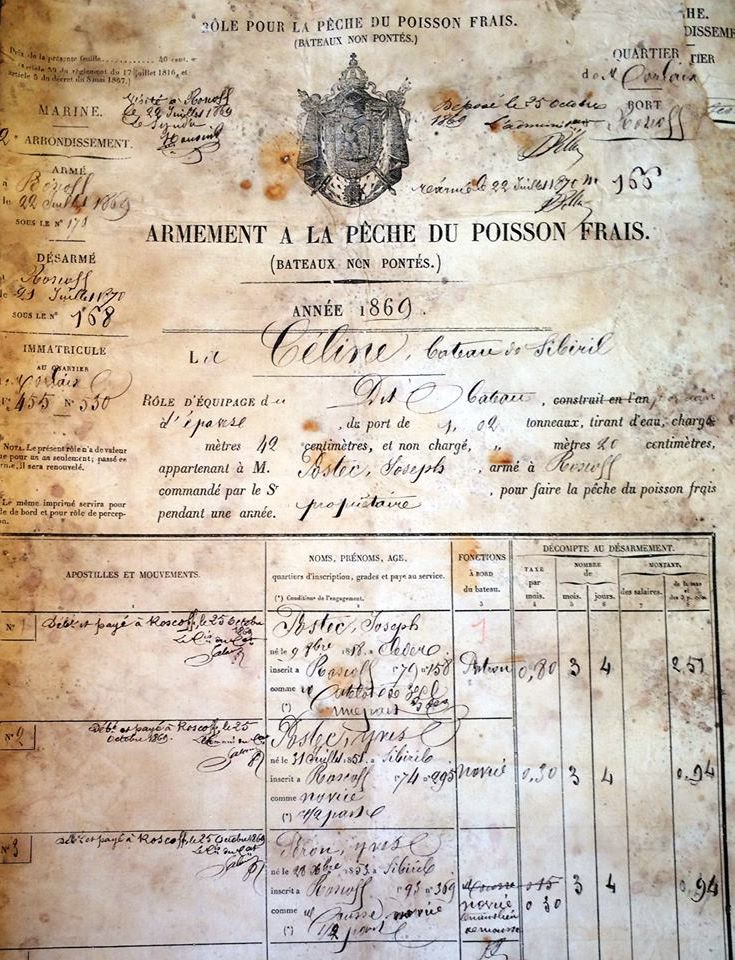 RÔLE POUR LA PÊCHE DU POISSON FRAIS.
(BATEAUX NON PONTÉS.)
Prix de la présente feuille 40 cent.
article 59 du règlement du 17 juillet 1816, et
article 5 du décret du 8 mai 1867.)
HE.
DISSEME
QUARTIER
TIER
de Morlaix
PORT
Roscoff
MARINE.
2e ARRONDISSEMENT.
Visité à Roscoff
le 22 Juillet 1869
Le Syndic
Déposé le 25 Octobre
1869
réarmé le 22 Juillet 1870 No 166
ARMÉ
à Roscoff
le 22 Juillet 1869
SOUS LE No 171
ARMEMENT A LA PÊCHE DU POISSON FRAIS.
(BATEAUX NON PONTÉS.)
DÉSARMÉ
Roscoff
le 21 Juillet 1870
SOUS LE No 168
ANNÉE 1869.
IMMATRICULE
AU QUARTIER
Morlaix
Fo 455 No 550
La Céline, bateau de Sibiril
RÔLE D'ÉQUIPAGE du Dit Bateau, construit en l'an
d'épaves, du port de 1, 02 tonneaux, tirant d'eau, chargé
mètres 42 centimètres, et non chargé, " mètres 20 centimètres,
appartenant à M. Postec, Joseph, armé à Roscoff
commandé par le Sr propriétaire, pour faire la pêche du poisson frais
pendant une année.
NOTA. Le présent rôle n'a de valeur
que pour un an seulement; passé ce
terme, il sera renouvelé.
Le même imprimé servira pour
rôle de bord et pour rôle de percep-
tion.
APOSTILLES ET MOUVEMENTS.
1
NOMS, PRÉNOMS, AGE,
quartiers d'inscription, grades et paye au service.
(*) Conditions de l'engagement.
FONCTIONS
A BORD
du bateau.
3
DÉCOMPTE AU DÉSARMEMENT.
TAXE
par
mois.
4
NOMBRE
de
mois.
jours.
6
MONTANT,
des salaires.
7
No 1
Débé et payé à Roscoff, le 25 Octobre
1869
Postec, Joseph
né le 9 8bre 1818 à Cléder
inscrit à Roscoff fo 79 no 158
comme
(*) une part
Patron
0,80
3
4
2 51
No 2
Débé et payé à Roscoff, le 25
Octobre 1869.
Postec, Yves
né le 31 Juillet 1851 à Sibiril
inscrit à Roscoff fo 74 no 295
comme novice
(*) 1/2 part
novice
0,30
3
4
0,94
No 3
Débé et payé à Roscoff, le 25 Octobre 1869
Yves
né le 28 1853 à Sibiril
inscrit à Roscoff fo 93 no 369
comme mousse novice
(*) 1/2 part
mousse
novice
0 15
0 30
3
4
0,94